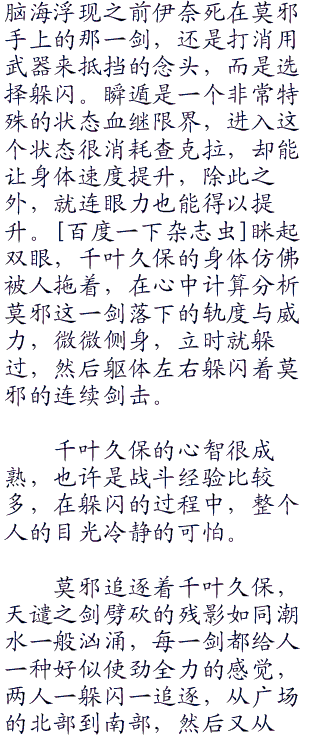 脑海浮现之前伊奈死在莫邪
手上的那一剑，还是打消用
武器来抵挡的念头，而是选
择躲闪。瞬遁是一个非常特
殊的状态血继限界，进入这
个状态很消耗查克拉，却能
让身体速度提升，除此之
外，就连眼力也能得以提
升。[百度一下杂志虫]眯起
双眼，千叶久保的身体仿佛
被人拖着，在心中计算分析
莫邪这一剑落下的轨度与威
力，微微侧身，立时就躲
过，然后躯体左右躲闪着莫
邪的连续剑击。
千叶久保的心智很成
熟，也许是战斗经验比较
多，在躲闪的过程中，整个
人的目光冷静的可怕。
莫邪追逐着千叶久保，
天谴之剑劈砍的残影如同潮
水一般汹涌，每一剑都给人
一种好似使劲全力的感觉，
两人一躲闪一追逐，从广场
的北部到南部，然后又从